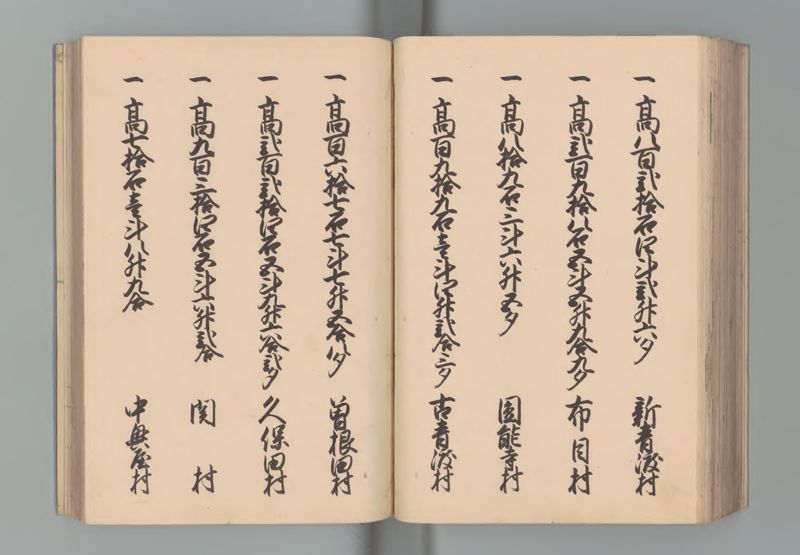 一 高八百弐拾石四斗弐升六夕 新青渡村
一 高弐百九拾八石五斗五升九合九夕 布目村
一 高八拾九石三斗六升五夕 圓能寺村
一 高百九拾九石壱斗四升弐合三夕 古青渡村
一 高百六拾七石七斗七升五合八夕 曽根田村
一 高弐百弐拾四石五斗九升六合弐夕 久保田村
一 高九百三拾四石五斗六升弐合 関村
一 高七拾石壱斗八升九合 中興屋村